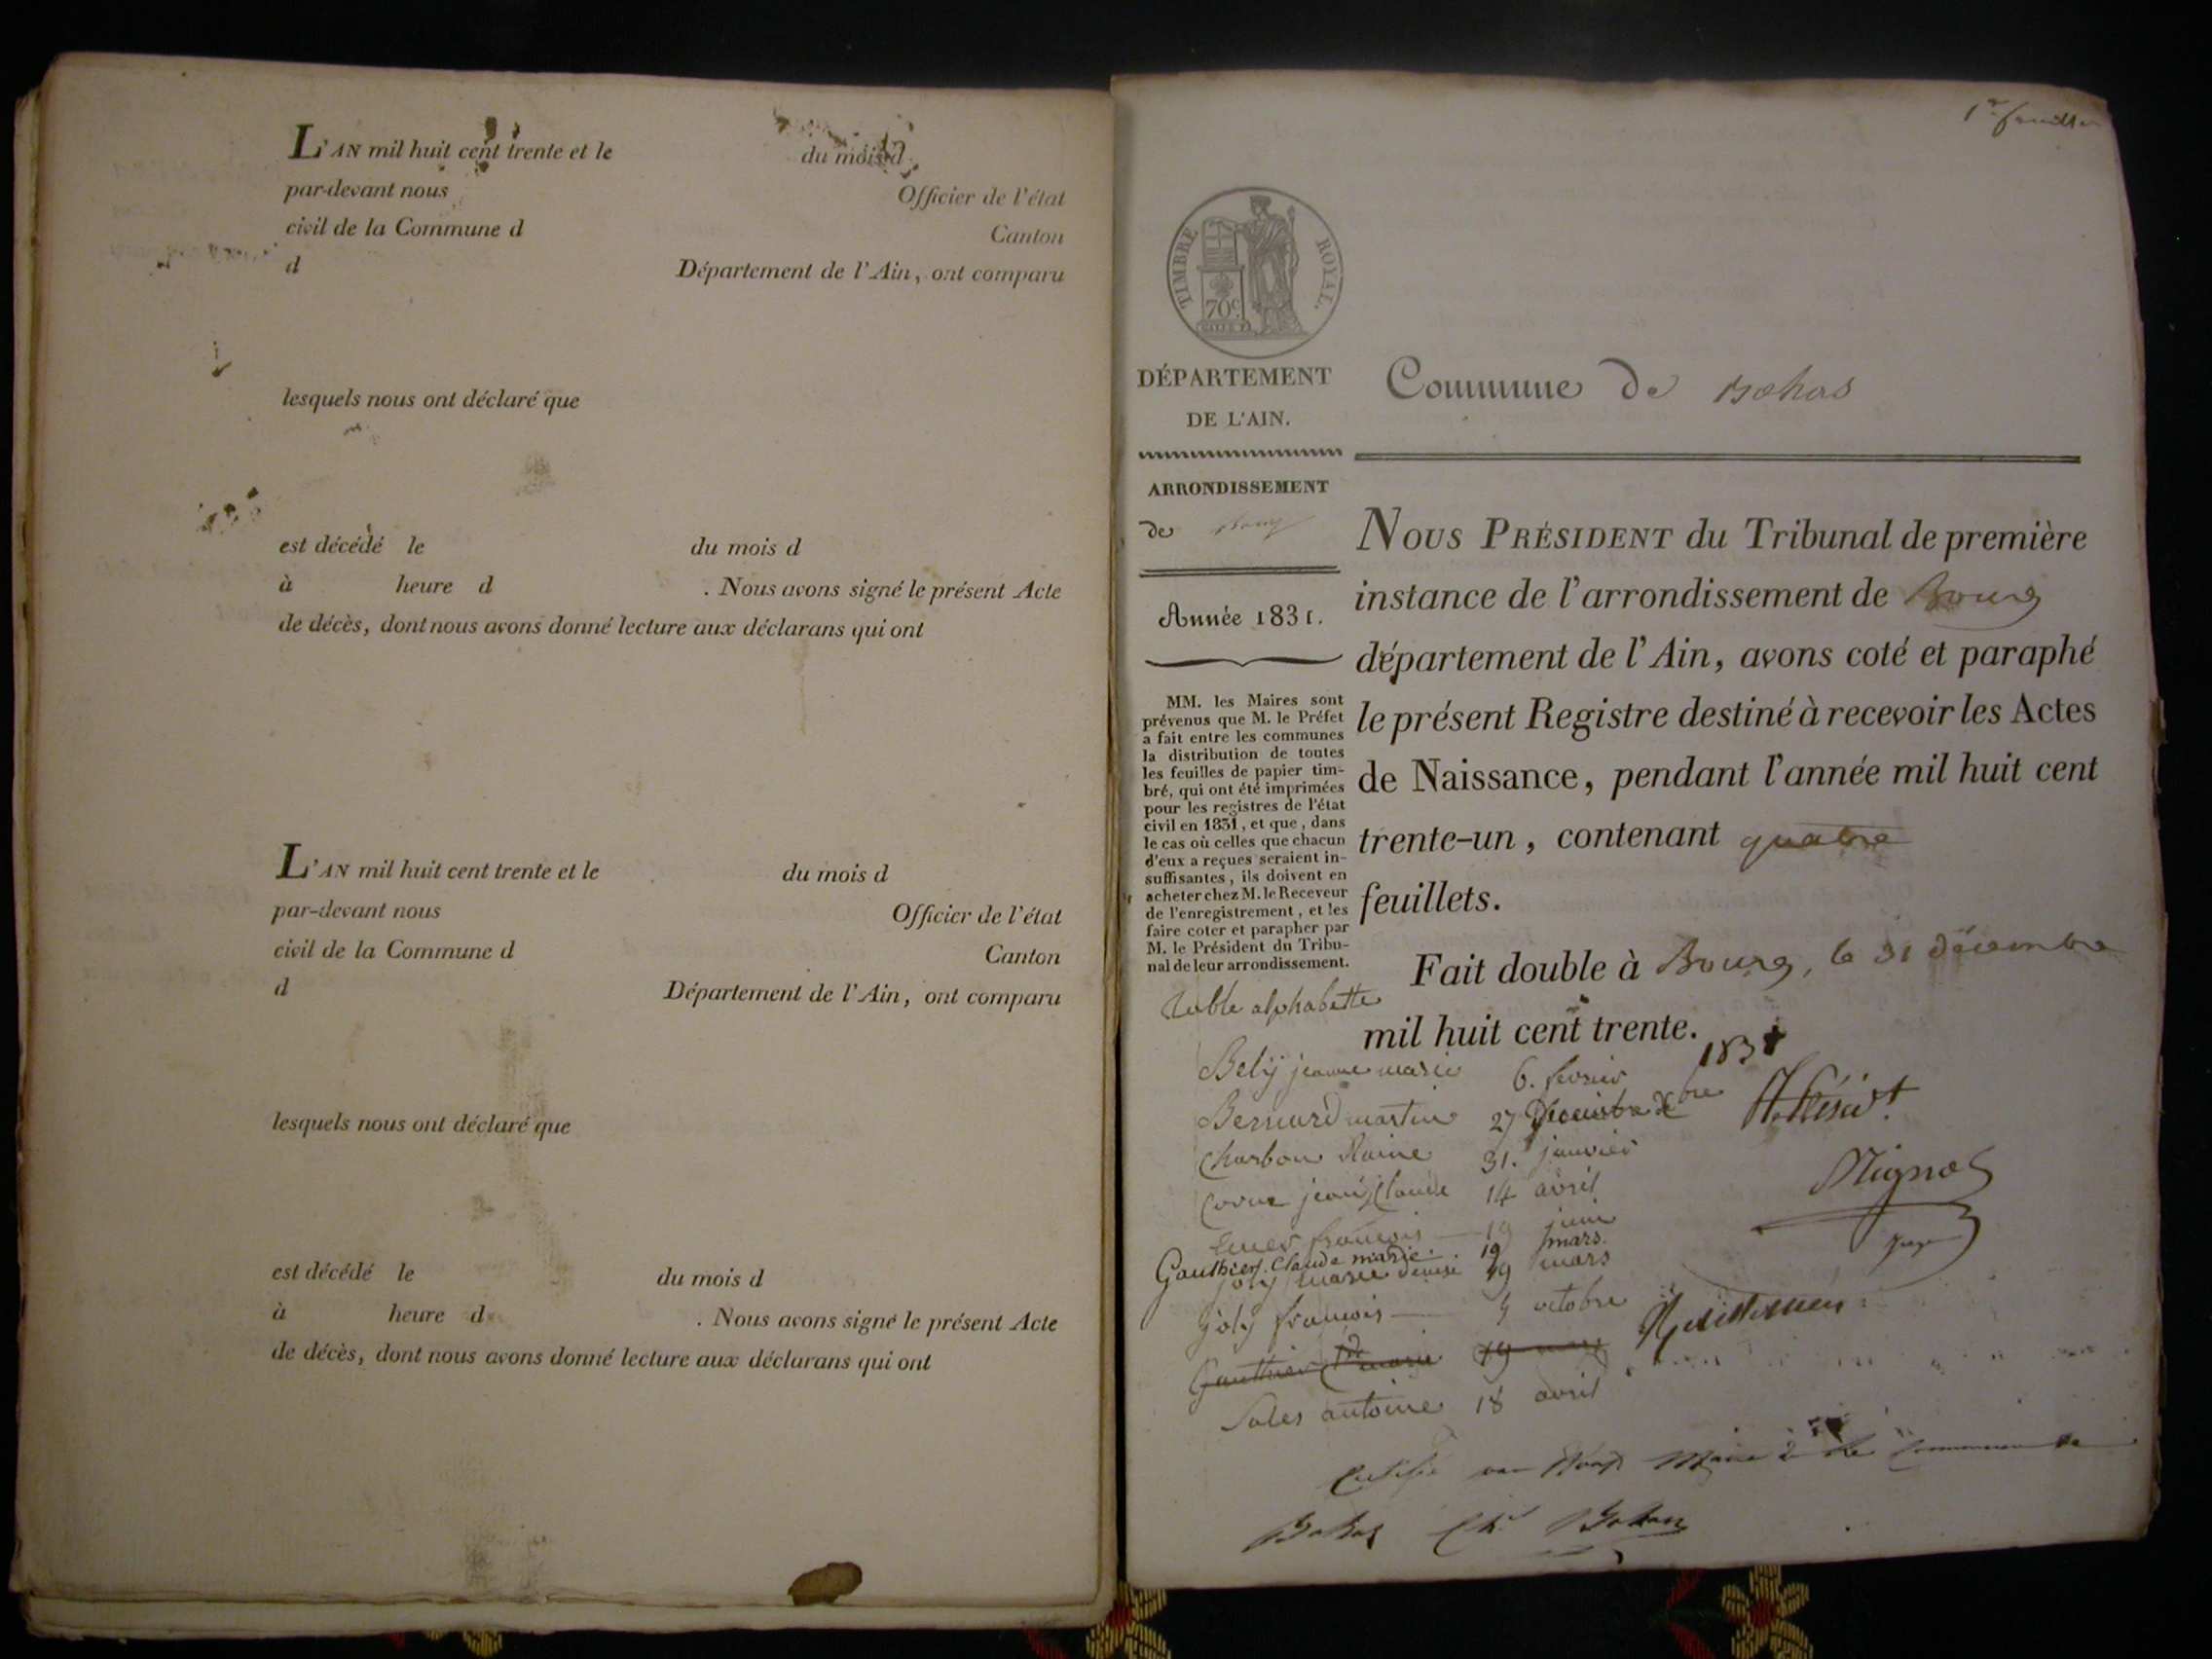 L'AN mil huit cent trente et le du mois d
par-devant nous Officier de l'état
civil de la Commune d Canton
d Département de l'Ain, ont comparu
lesquels nous ont déclaré que
est décédé le du mois d
à heure d . Nous avons signé le présent Acte
de décès, dont nous avons donné lecture aux déclarans qui ont
L'AN mil huit cent trente et le du mois d
par-devant nous Officier de l'état
civil de la Commune d Canton
d Département de l'Ain, ont comparu
lesquels nous ont déclaré que
est décédé le du mois d
à heure d . Nous avons signé le présent Acte
de décès, dont nous avons donné lecture aux déclarans qui ont
TIMBRE ROYAL.
70c.
DÉPARTEMENT
DE L'AIN.
ARRONDISSEMENT
de Bourg
Année 1831.
MM. les Maires sont
prévenus que M. le Préfet
a fait entre les communes
la distribution de toutes
les feuilles de papier tim-
bré, qui ont été imprimées
pour les registres de l'état
civil en 1831, et que, dans
le cas où celles que chacun
d'eux a reçues seraient in-
suffisantes, ils doivent en
acheter chez M. le Receveur
de l'enregistrement, et les
faire coter et parapher par
M. le Président du Tribu-
nal de leur arrondissement.
Commune de Bohas
NOUS PRÉSIDENT du Tribunal de première
instance de l'arrondissement de Bourg
département de l'Ain, avons coté et paraphé
le présent Registre destiné à recevoir les Actes
de Naissance, pendant l'année mil huit cent
trente-un, contenant quatre
feuillets.
Fait double à Bourg, le 31 décembre
mil huit cent trente.
1831
Bely jeanne marie 6. fevrier
Bernard martin 27
Charbon Reine 31. janvier
jean Claude 14 avril
francois 19 juin
Gauthier Claude marie. 19 mars.
joly marie denise 19 mars
joly francois 9 octobre
Gauthier marie 19 mars
Sales antoine 18 avril
Mignot
juge
Bohas